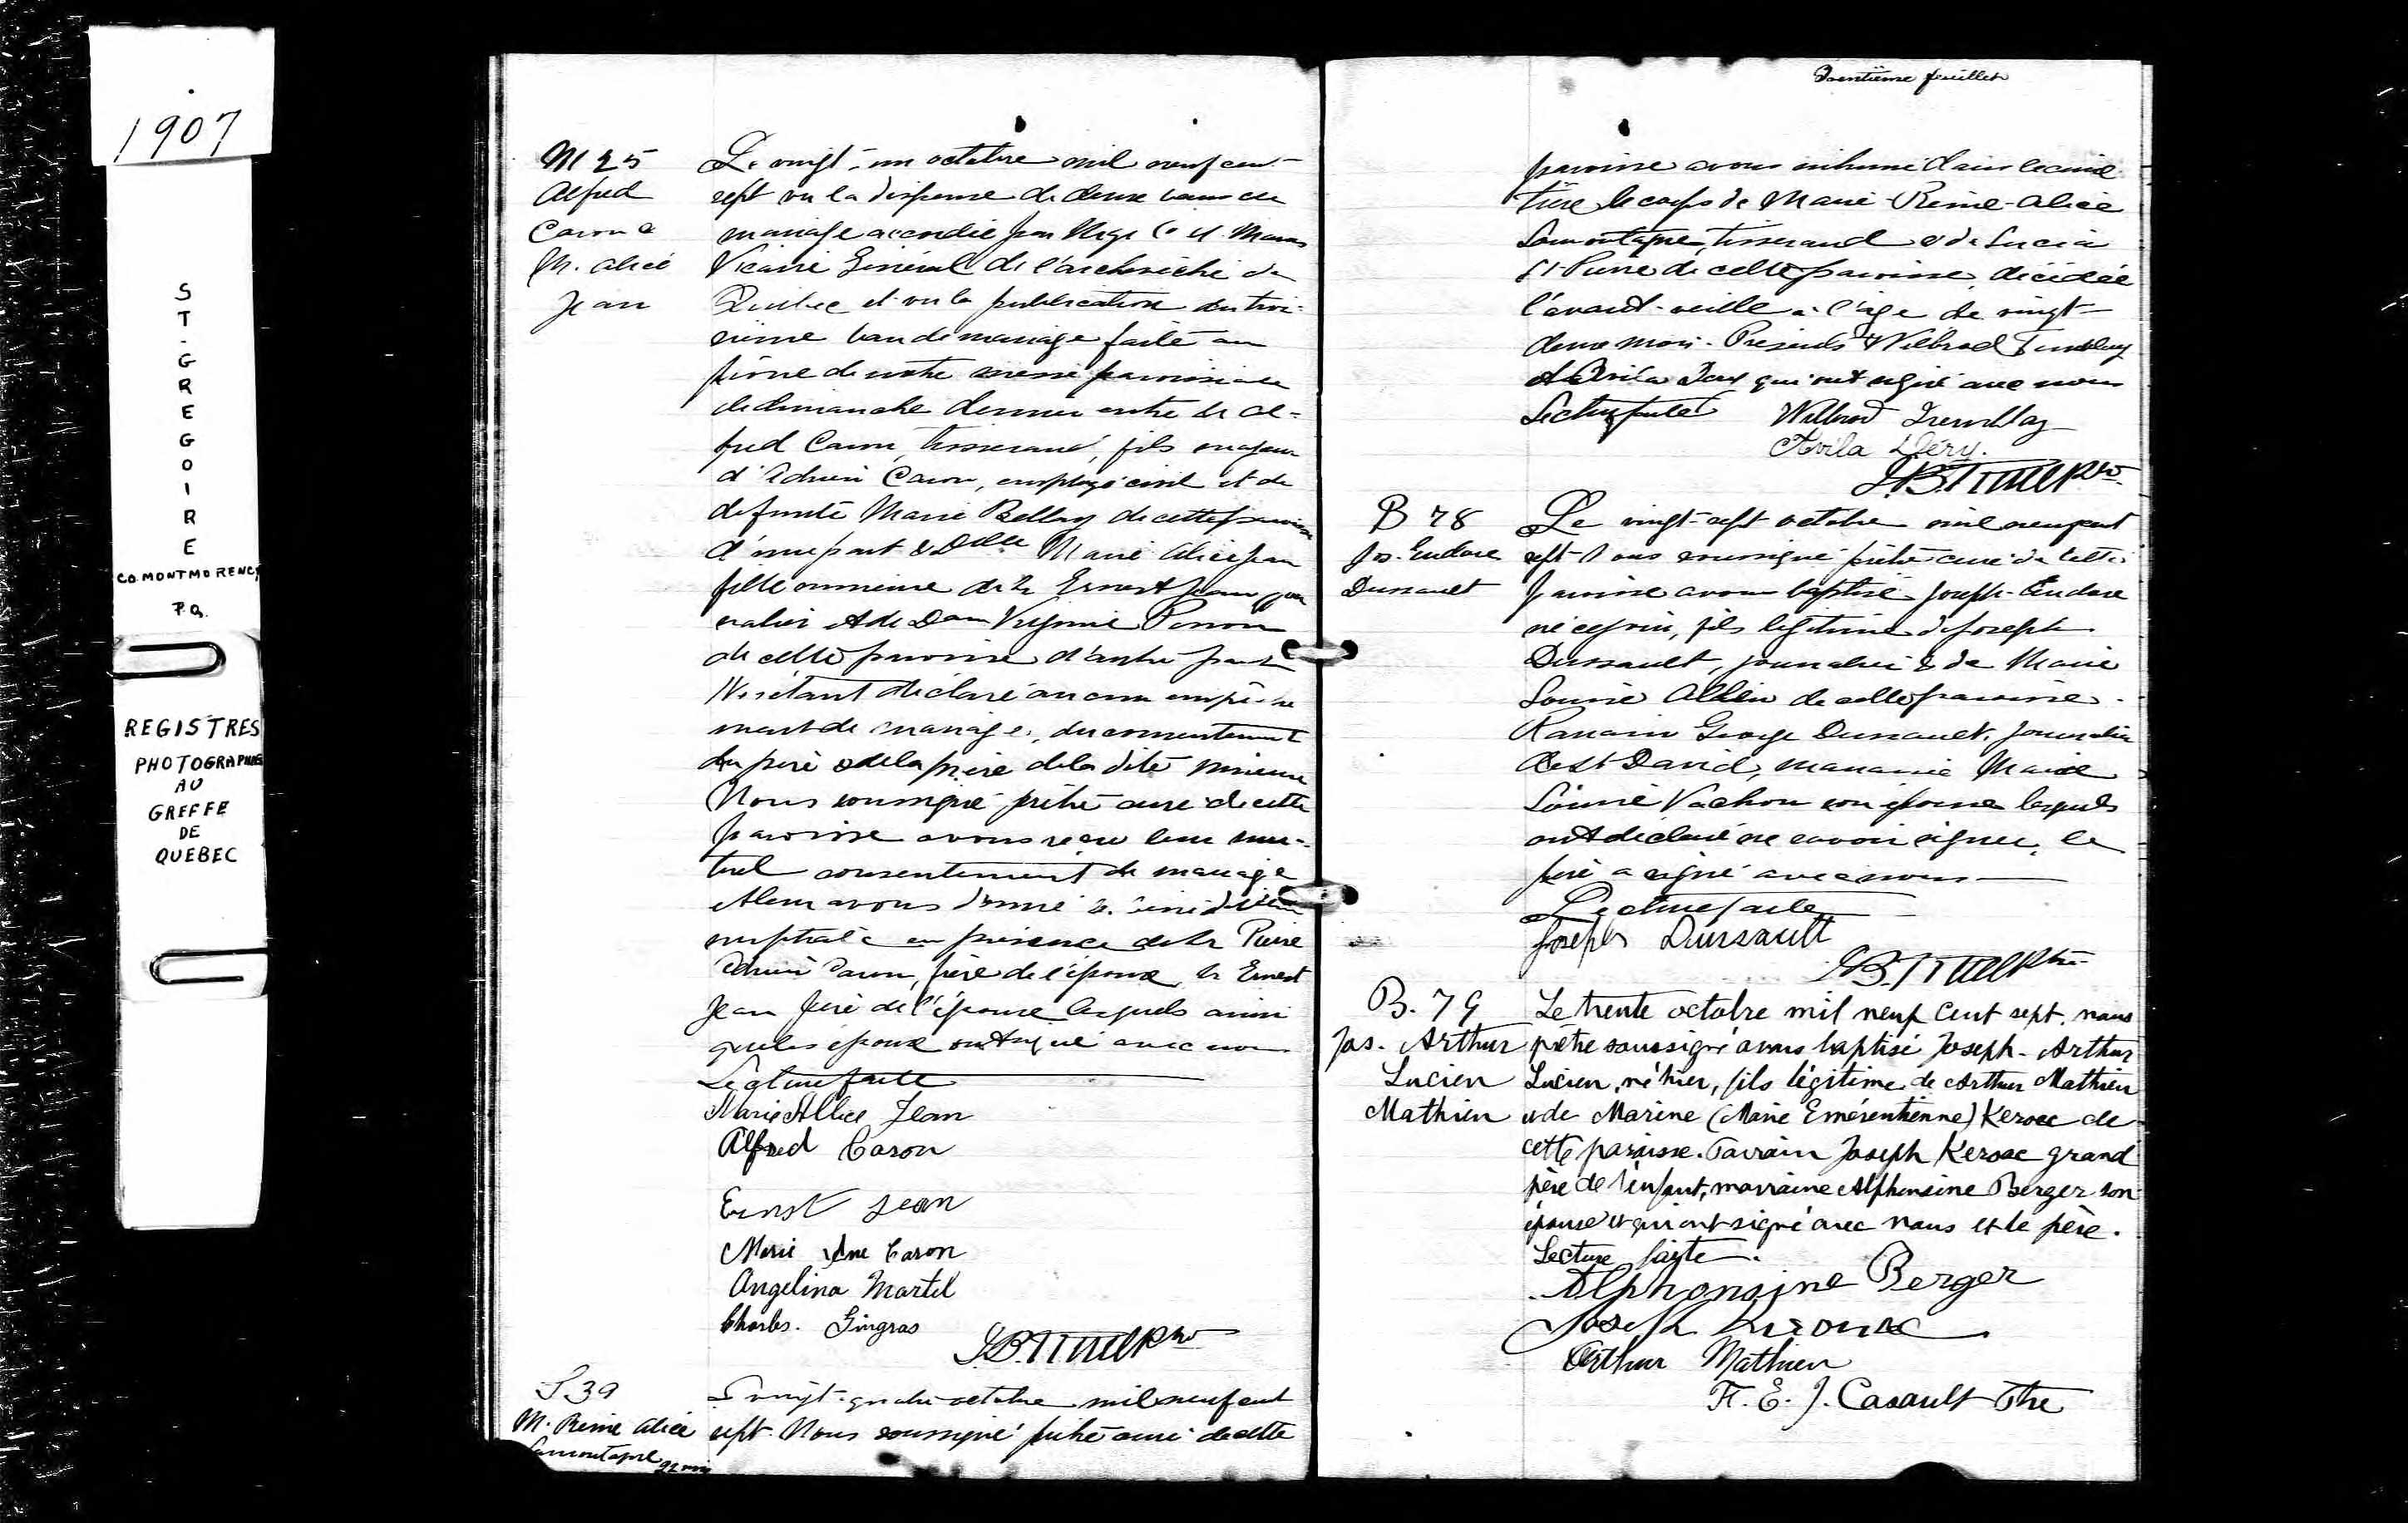 1907
ST-GREGOIRE
CO. MONTMORENCY
P.Q.
REGISTRES
PHOTOGRAPHIES
AU
GREFFE
DE
QUEBEC
M 25
Alfred
Caron &
M. Alice
Jean
Le vingt-un octobre mil neuf cent
sept vu la dispense de deux bans de
mariage accordée par Mgr C. A. Marois
Vicaire Général de l'archevêché de
Québec et vu la publication du troi-
sième ban de mariage faite au
prône de notre messe paroissiale
de dimanche dernier entre Sr Al-
fred Caron, tisserand, fils majeur
d'Adrien Caron, employé civil et de
defunte Marie Belleau de cette paroisse
d'une part & Dlle Marie Alice Jean
fille mineure de Sr Ernest Jean jour
nalier et de Dam Virginie
de cette paroisse d'autre part
Ne s'étant déclaré aucun empêche
ment de mariage, du consentement
du père & de la mère de la dite mineure
Nous soussigné prêtre curé de cette
paroisse avons reçu leur mu-
tuel consentement de mariage
et leur avons donné la bénédiction
nuptiale en présence de Sr Pierre
Adrien Caron, père de l'époux, Sr Ernest
Jean père de l'épouse lesquels ainsi
que les époux ont signé avec nous
Lecture faite
Marie Allice Jean
Alfred Caron
Ernst Jean
Marie Ane Caron
Angelina Martel
Charles. Gingras
J.B. Ptre
S 39
M. Reine Alice
Lamontagne 22 mois
Le vingt-quatre octobre mil neuf cent
sept. Nous soussigné prêtre curé de cette
Trentième feuillet
paroisse avons inhumé dans le cime
tière le corps de Marie-Reine-Alice
Lamontagne tisserand & de Lucia
St-Pierre de cette paroisse, décédée
l'avant-veille à l'âge de vingt-
deux mois. Présents Wilbrod Tremblay
et Avila Dery qui ont signé avec nous
Lecture faite
Wilbrod Tremblay
Avila Déry.
J.B. Ptre
B 78
Jos. Eudore
Dussault
Le vingt-sept octobre mil neuf cent
sept Nous soussigné prêtre curé de cette
paroisse avons baptisé Joseph-Eudore
né ce jour, fils légitime de Joseph
Dussault, journalier & de Marie
Louise Allen de cette paroisse.
Parrain George Dussault, journalier
de St David, marraine Marie
Louise Vachon son épouse lesquels
ont déclaré ne savoir signer, le
père a signé avec nous
Lecture faite
Joseph Dussault
J.B. Ptre
B. 79
Jos. Arthur
Lucien
Mathieu
Le trente octobre mil neuf cent sept, nous
prêtre soussigné avons baptisé Joseph-Arthur
Lucien, né hier, fils légitime de Arthur Mathieu
& de Marine (Marie Emérentienne) Keroac de
cette paroisse. Parrain Joseph Keroac grand
père de l'enfant, marraine Alphonsine Berger son
épouse et qui ont signé avec nous et le père.
Lecture faite.
Alphonsine Berger
Joseph
Arthur Mathieu
F. E. J. Casault Ptre